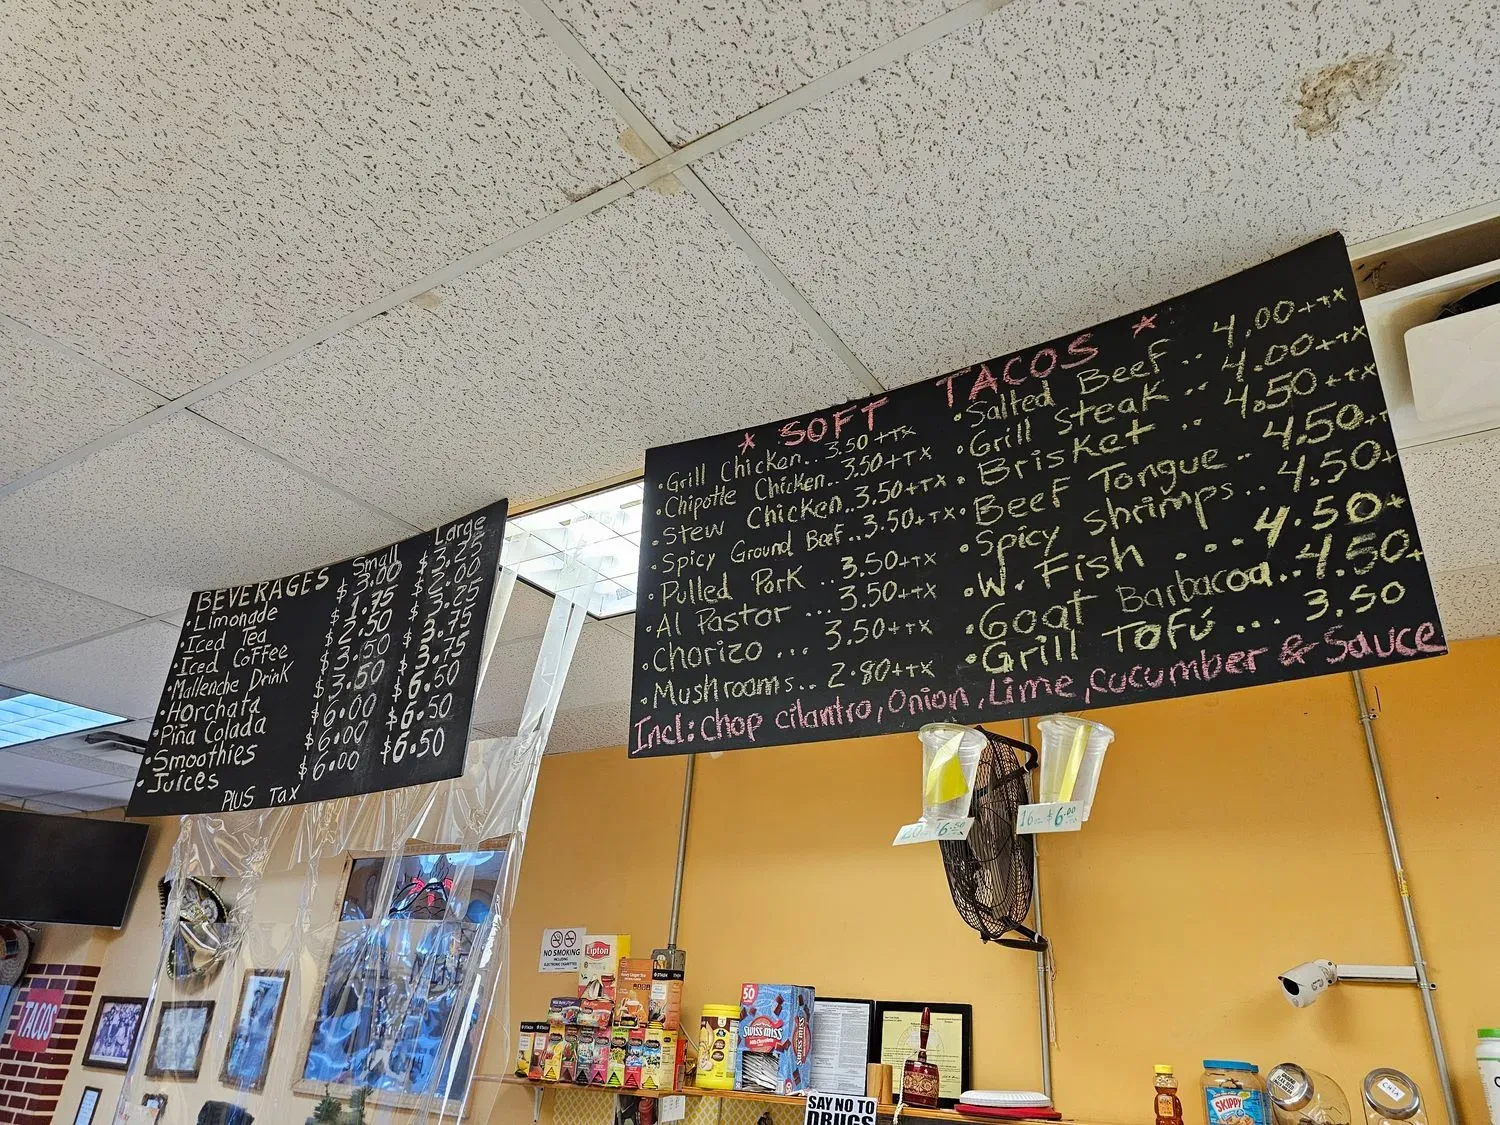 BEVERAGES Small Large
• Limonade $ 3.00 $ 3.25
• Iced Tea $ 1.75 $ 2.00
• Iced Coffee $ 2.50 $ 3.25
• Mallenche Drink $ 3.50 $ 3.75
• Horchata $ 3.50 $ 3.75
• Piña Colada $ 6.00 $ 6.50
• Smoothies $ 6.00 $ 6.50
• Juices $ 6.00 $ 6.50
PlUS Tax
* SOFT TACOS *
• Grill Chicken.. 3.50++TX
• Chipotle Chicken.. 3.50++TX
• Stew Chicken..3.50++TX
• Spicy Ground Beef..3.50++TX
• Pulled Pork .. 3.50++TX
• Al Pastor ... 3.50++TX
• Chorizo ... 3.50++TX
• Mushrooms.. 2.80++TX
• Salted Beef.. 4.00++TX
• Grill Steak .. 4.00++TX
• Brisket .. 4.50++TX
• Beef Tongue.. 4.50+
• Spicy shrimps.. 4.50+
• W. Fish .... 4.50+
• Goat Barbacoa..4.50+
• Grill ToFú ... 3.50
Incl: chop cilantro, Onion, Lime, cucumber & Sauce
20oz $6.50
16oz $6.00
NO SMOKING
Lipton
50
SWISS MISS
SAY NO TO
DRUGS
TACOS
SKIPPY
CHIA